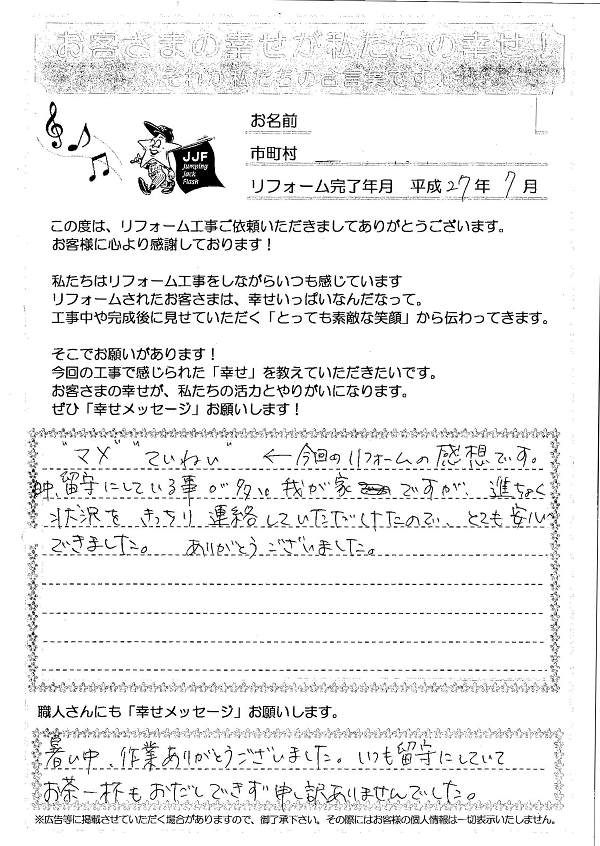 お客さまの幸せが私たちの幸せ!
それが私たちの合言葉です
JJF
Jumping
Jack
Flash
お名前
市町村
リフォーム完了年月 平成27年7月
この度は、リフォーム工事ご依頼いただきましてありがとうございます。
お客様に心より感謝しております!
私たちはリフォーム工事をしながらいつも感じています
リフォームされたお客さまは、幸せいっぱいなんだなって。
工事中や完成後に見せていただく「とっても素敵な笑顔」から伝わってきます。
そこでお願いがあります!
今回の工事で感じられた「幸せ」を教えていただきたいです。
お客さまの幸せが、私たちの活力とやりがいになります。
ぜひ「幸せメッセージ」お願いします!
"マメ" "ていねい" ←今回のリフォームの感想です。
留守にしている事が多い我が家ですが、進ちょく
状況をきっちり連絡していただけたので、とても安心
できました。 ありがとうございました。
職人さんにも「幸せメッセージ」お願いします。
暑い中、作業ありがとうございました。いつも留守にしていて
お茶一杯もおだしできず申し訳ありませんでした。
※広告等に掲載させていただく場合がありますので、御了承下さい。その際にはお客様の個人情報は一切表示いたしません。